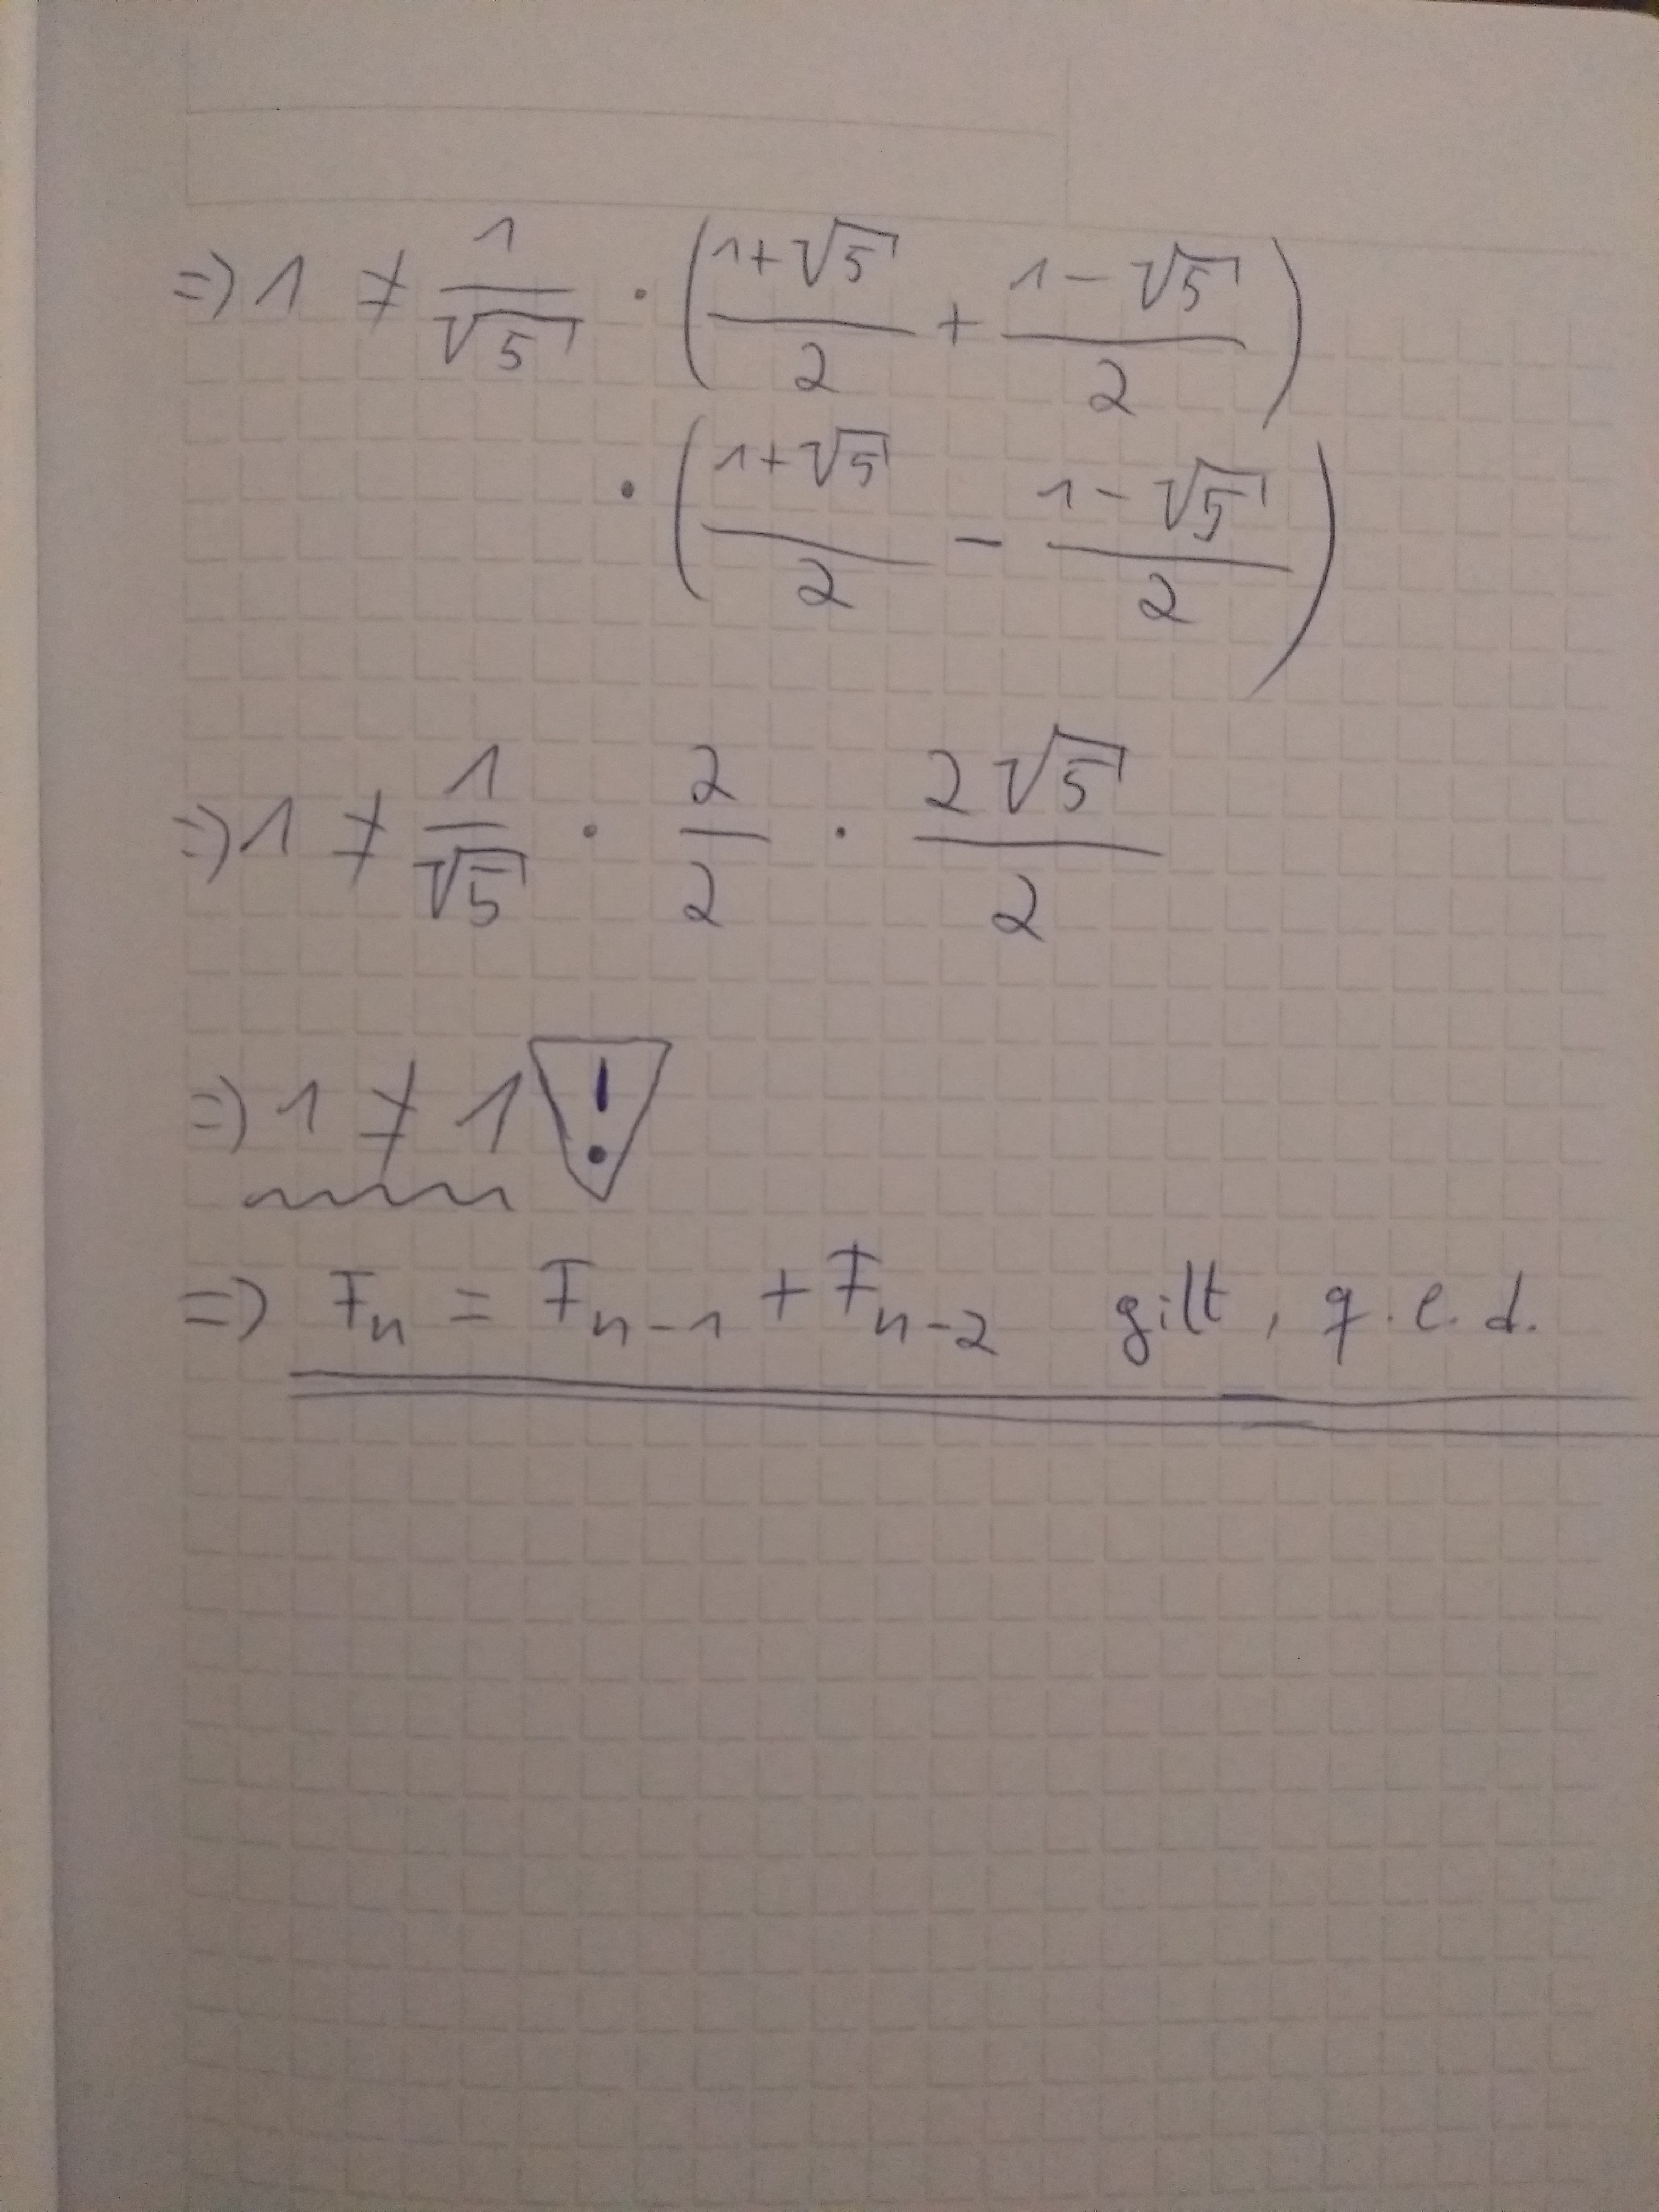 ⇒ 1 ≠ 1/√5 · ((1+√5)/2 + (1-√5)/2)
· ((1+√5)/2 - (1-√5)/2)
⇒ 1 ≠ 1/√5 · 2/2 · 2√5/2
⇒ 1 ≠ 1 !
⇒ Fn = Fn-1 + Fn-2 gilt, q.e.d.